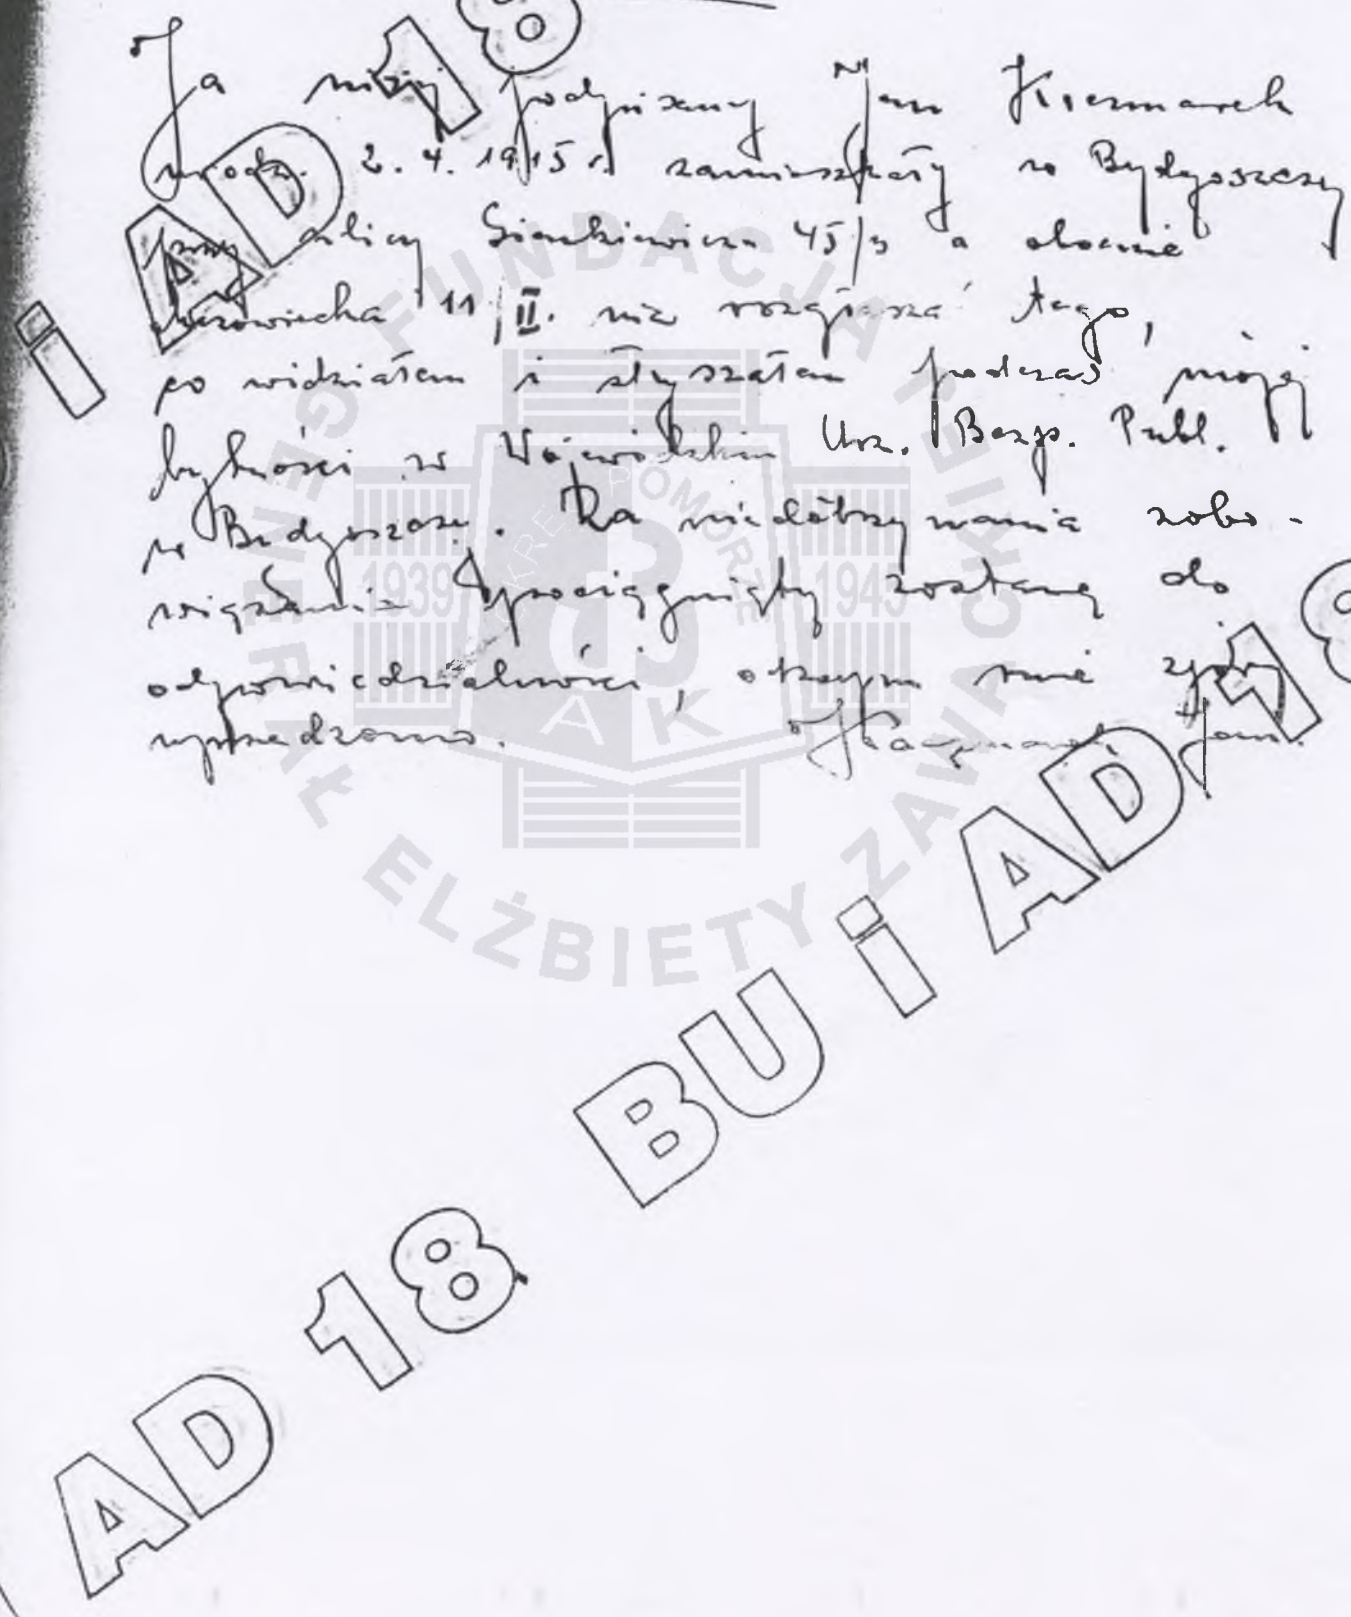 Ja niżej podpisany Jan Kaczmarek
urodz. 2. 4. 1915 r. zamieszkały w Bydgoszczy
przy ulicy Sienkiewicza 45/3 a obecnie
11/II. nie rozgłaszać tego,
co widziałem i słyszałem podczas mojej
bytności w Wojewódzkim Urz. Bezp. Publ.
w Bydgoszczy. Za niedotrzymania zobo-
wiązania pociągnięty zostanę do
odpowiedzialności, o czym mnie
uprzedzono. Kaczmarek Jan.
i AD 18
BU i AD 18
AD 18
FUNDACJA GENERAŁ ELŻBIETY ZAWACKIEJ
OKRĘG POMORZE
1939 1945
AK